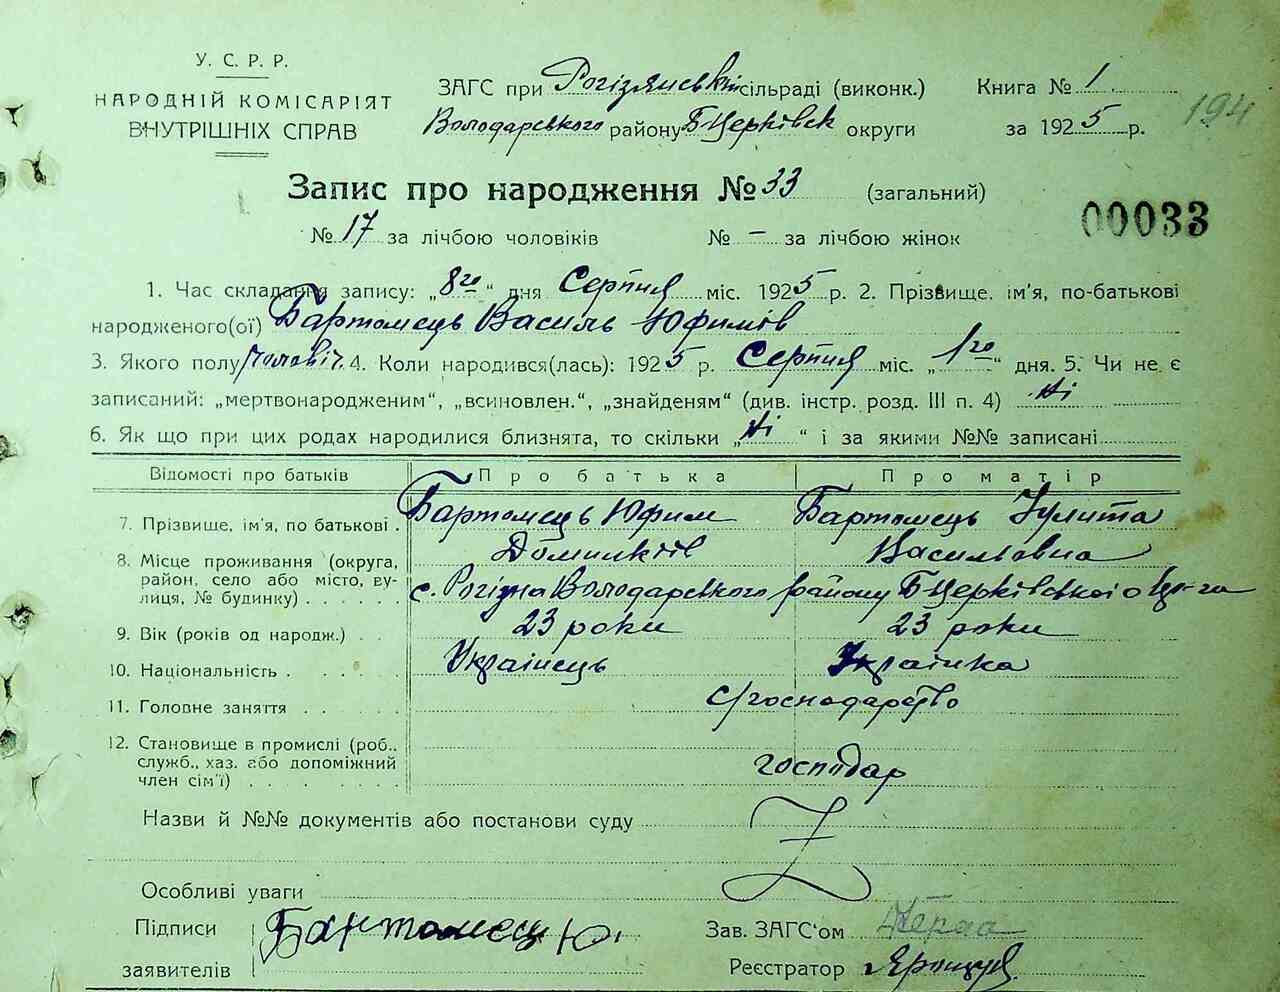 У. С. Р. Р.
НАРОДНІЙ КОМІСАРІЯТ
ВНУТРІШНІХ СПРАВ
ЗАГС при Рогізянській сільраді (виконк.)
Володарського району Б Церківськ округи
Книга № 1
за 1925 р.
194
Запис про народження № 33 (загальний)
00033
№ 17 за лічбою чоловіків № — за лічбою жінок
1. Час складання запису: „8го“ дня Серпня міс. 1925 р. 2. Прізвище, ім'я, по-батькові
народженого(ої) Бартомець Василь Юфимів
3. Якого полу чоловіч. 4. Коли народився(лась): 1925 р. Серпня міс. „1го“ дня. 5. Чи не є
записаний: „мертвонародженим“, „всиновлен.“, „знайденям“ (див. інстр. розд. III п. 4) Ні
6. Як що при цих родах народилися близнята, то скільки „Ні“ і за якими №№ записані
Відомості про батьків Про батька Про матір
7. Прізвище, ім'я, по батькові . Бартомець Юфим Бартомець Улита
Василівна
8. Місце проживання (округа,
район, село або місто, ву-
лиця, № будинку) . . . . . . с. Рогізна Володарського району Б Церківської
9. Вік (років од народж.) . . 23 роки 23 роки
10. Національність . . . . . Українець Українка
11. Головне заняття . . . . . с/господарство
12. Становище в промислі (роб.,
служб., хаз. або допоміжний
член сім'ї) . . . . . . . . господар
Назви й №№ документів або постанови суду
Особливі уваги
Підписи Бартомець Ю.
заявителів
Зав. ЗАГС'ом
Реєстратор